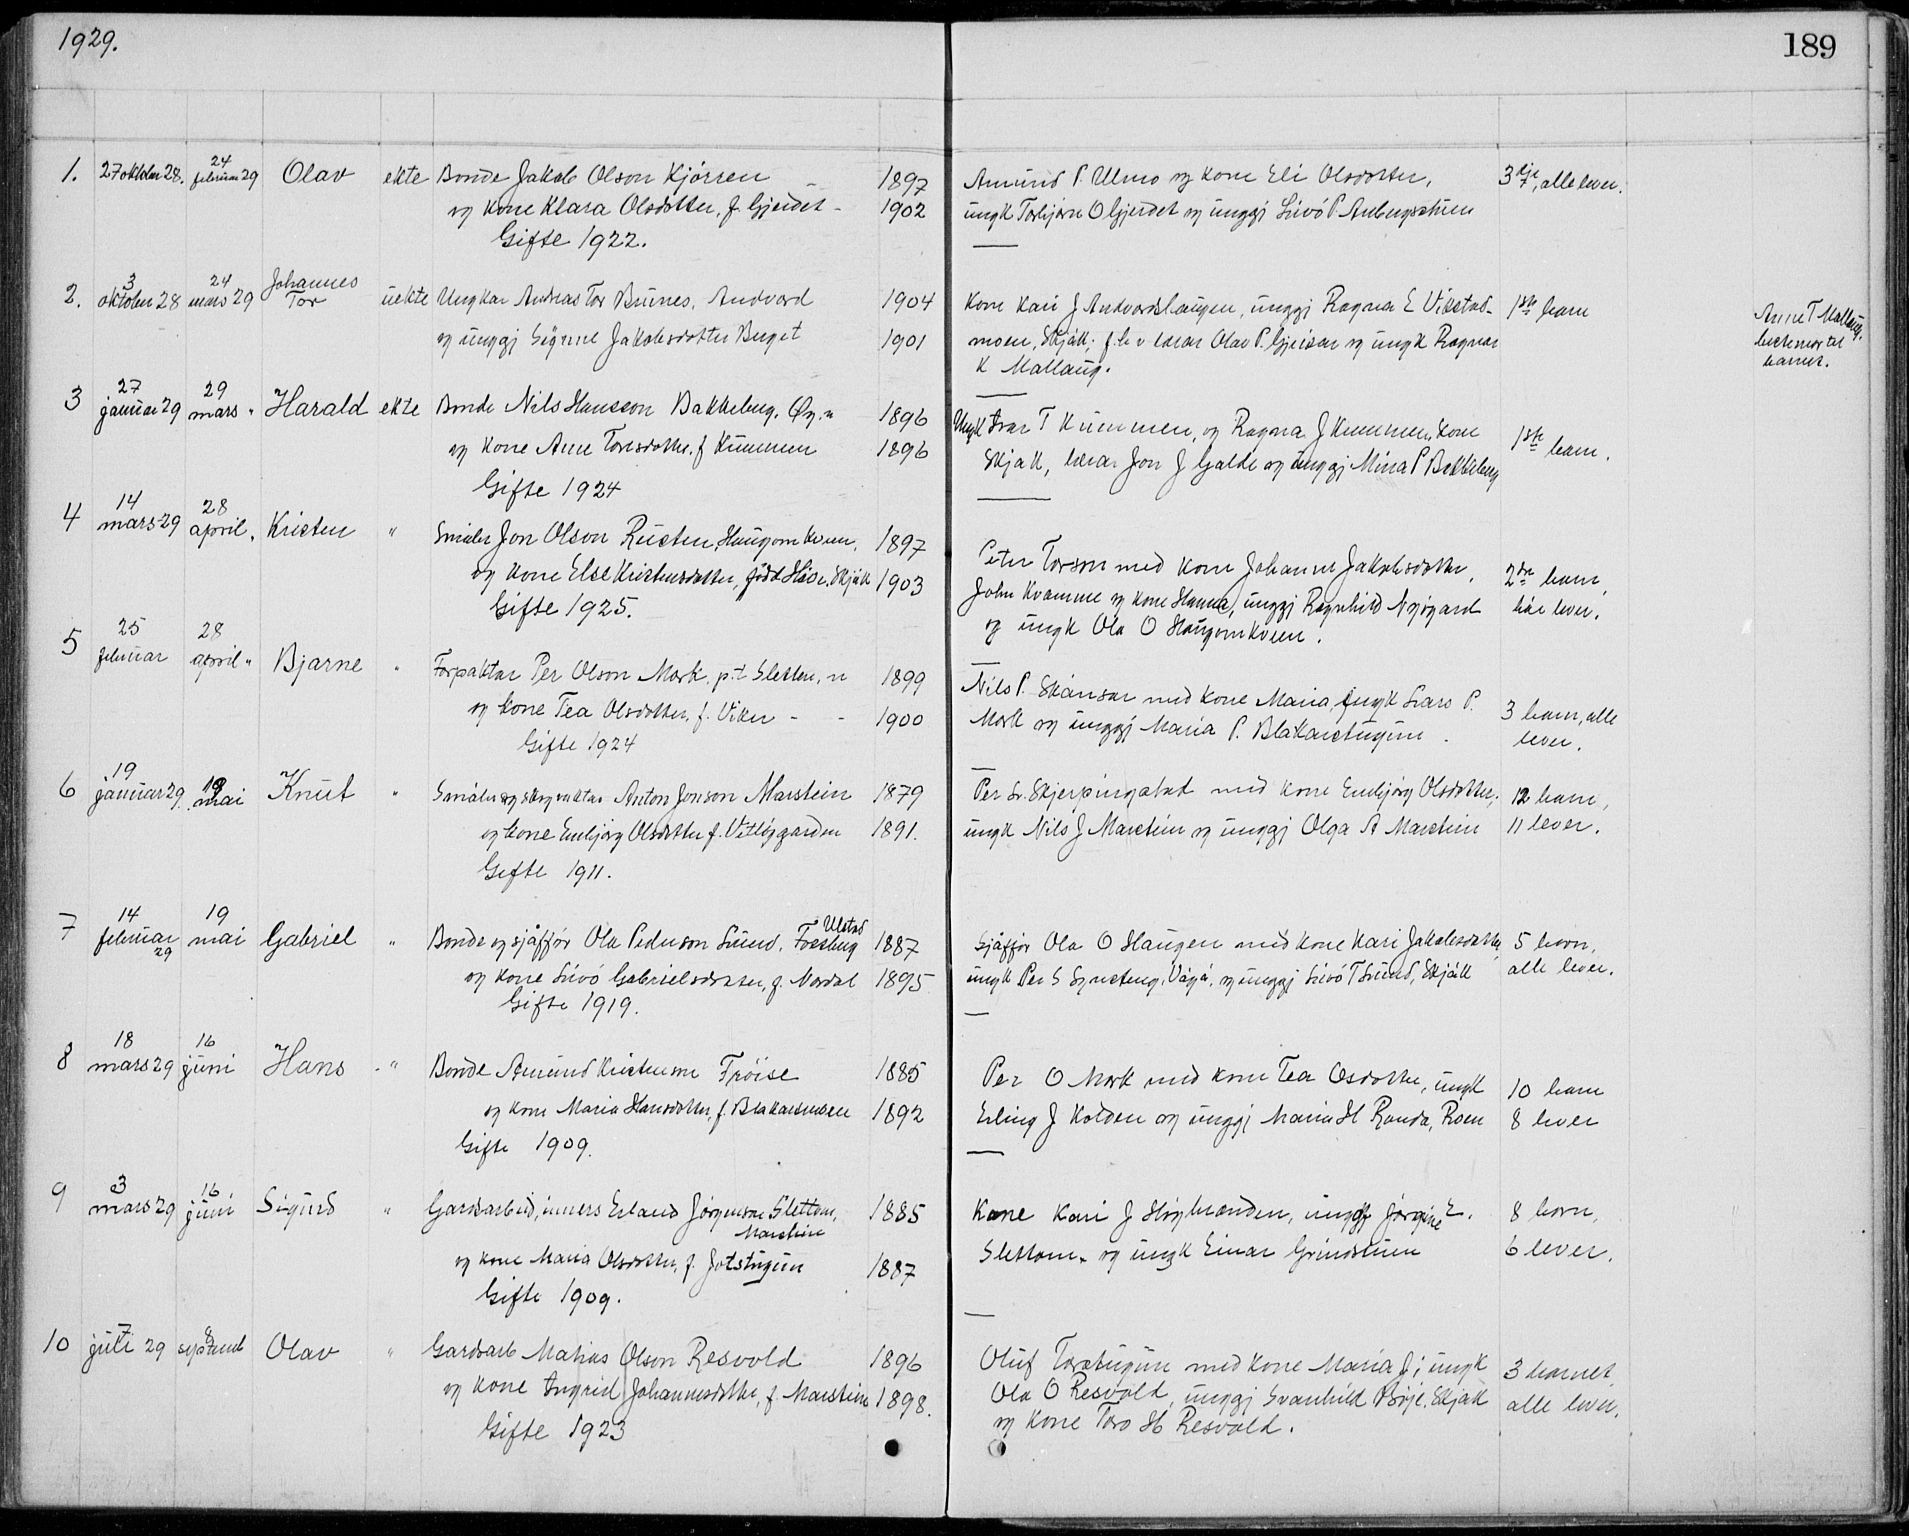 1929.
189
1. 27 oktober 28. 24 februar 29 Olav ekte Bonde Jakob Olson Kjörren 1897
og kone Klara Olsdotter, f. Gjeidet - 1902
Gifte 1922.
Amund P. Ulmo og kone Eli Olsdotter,
ungk Torbjörn O Gjeidet og unggj Livö P
3dje, alle lever.
2. 3 oktober 28 24 mars 29 Johannes Tor uekte Ungkar Andreas Tor Brunes, Andvord 1904
og unggj Signe Jakobsdotter Berget 1901
Kone Kari J Andvordshaugen, unggj Ragna E Vikstad-
moen, Skjåk; f. h v lærar Olav P. Gjeisar og ungk Ragnar
K Mallaug.
1ste barn
Anne T Mallaug,
barnet.
3 27 januar 29 29 mars " Harald ekte Bonde Nils Hansson Bakkeberg, Øy. n 1896
og kone Anne Torsdotter, f Kummen 1896
Gifte 1924
Ungk Ivar T Kummen, og Ragna J Kummen, kone
Skjåk, lærar Jon J Galde og unggj Mina P Bakkeberg
1ste barn.
4 14 mars 29 28 april " Kristen " Småbr Jon Olson Rusten, Haugomkveen, 1897
og kone Else Kristensdotter, född Håve, Skjåk 1903
Gifte 1925.
Peter Torson med kone Johanne Jakobsdotter,
John Kvamme og kone Hanna, unggj Ragnhild Nyögard
og ungk Ola O Haugomkveen.
2dre barn,
båe lever.
5 25 februar 28 april " Bjarne " Forpaktar Per Olson Mork, p.t Sletten, n 1899
og kone Tea Olsdotter, f. Viken - - 1900
Gifte 1924
Nils P. Skansar med kone Maria, ungk Lars P.
Mork og unggj Maria P. Blakarstugun.
3 barn, alle
lever.
6 19 januar 29 19 mai Knut " Småbr og skogvaktar Anton Jonson Marstein 1879
og kone Embjörg Olsdotter f. Vetlöygarden 1891.
Gifte 1911.
Per Sr. Skjerpingstad med kone Embjörg Olsdotter,
ungk Nils J Marstein og unggj Olga A Marstein
12 barn,
11 lever.
7 14 februar 29 19 mai Gabriel " Bonde og sjåfför Ola Pederson Sund, Ulstad Fossberg 1887
og kone Livö Gabrielsdotter, f. Nordal 1895
Gifte 1919.
Sjåffør Ola O Haugen med kone Kari Jakobsdotter
ungk Per S Synsteng, Vågå, og unggj Livö T Sund, Skjåk
5 born,
alle lever.
8 18 mars 29 16 juni Hans " Bonde Amund Kristenson Fröise 1885
og kone Maria Hansdotter, f. Blakarsmoen 1892
Gifte 1909.
Per O Mork med kone Tea Osdotter, ungk
Erling J Kolden og unggj Maria H Randa, Roen
10 barn
8 lever
9 3 mars 29 16 juni Sigurd " Gardsarbeid, inners Erland Jörgenson Slettom, 1885
Marstein
og kone Maria Olsdotter, f. Jotstugun 1887
Gifte 1909.
Kone Kari J Höybrenden, unggj Jörgine E.
Slettom, og ungk Einar Grindstuen
8 born,
6 lever.
10 7 juli 29 8 septemb Olav " Gardsarb Matias Olson Resvold 1896
og kone Ingrid Johannesdotter, f. Marstein 1898.
Gifte 1923
Oluf Torstugun med kone Maria J; ungk
Ola O Resvold, unggj Svanhild Böje, Skjåk
og kone Toro H Resvold.
3 barnet
alle lever.